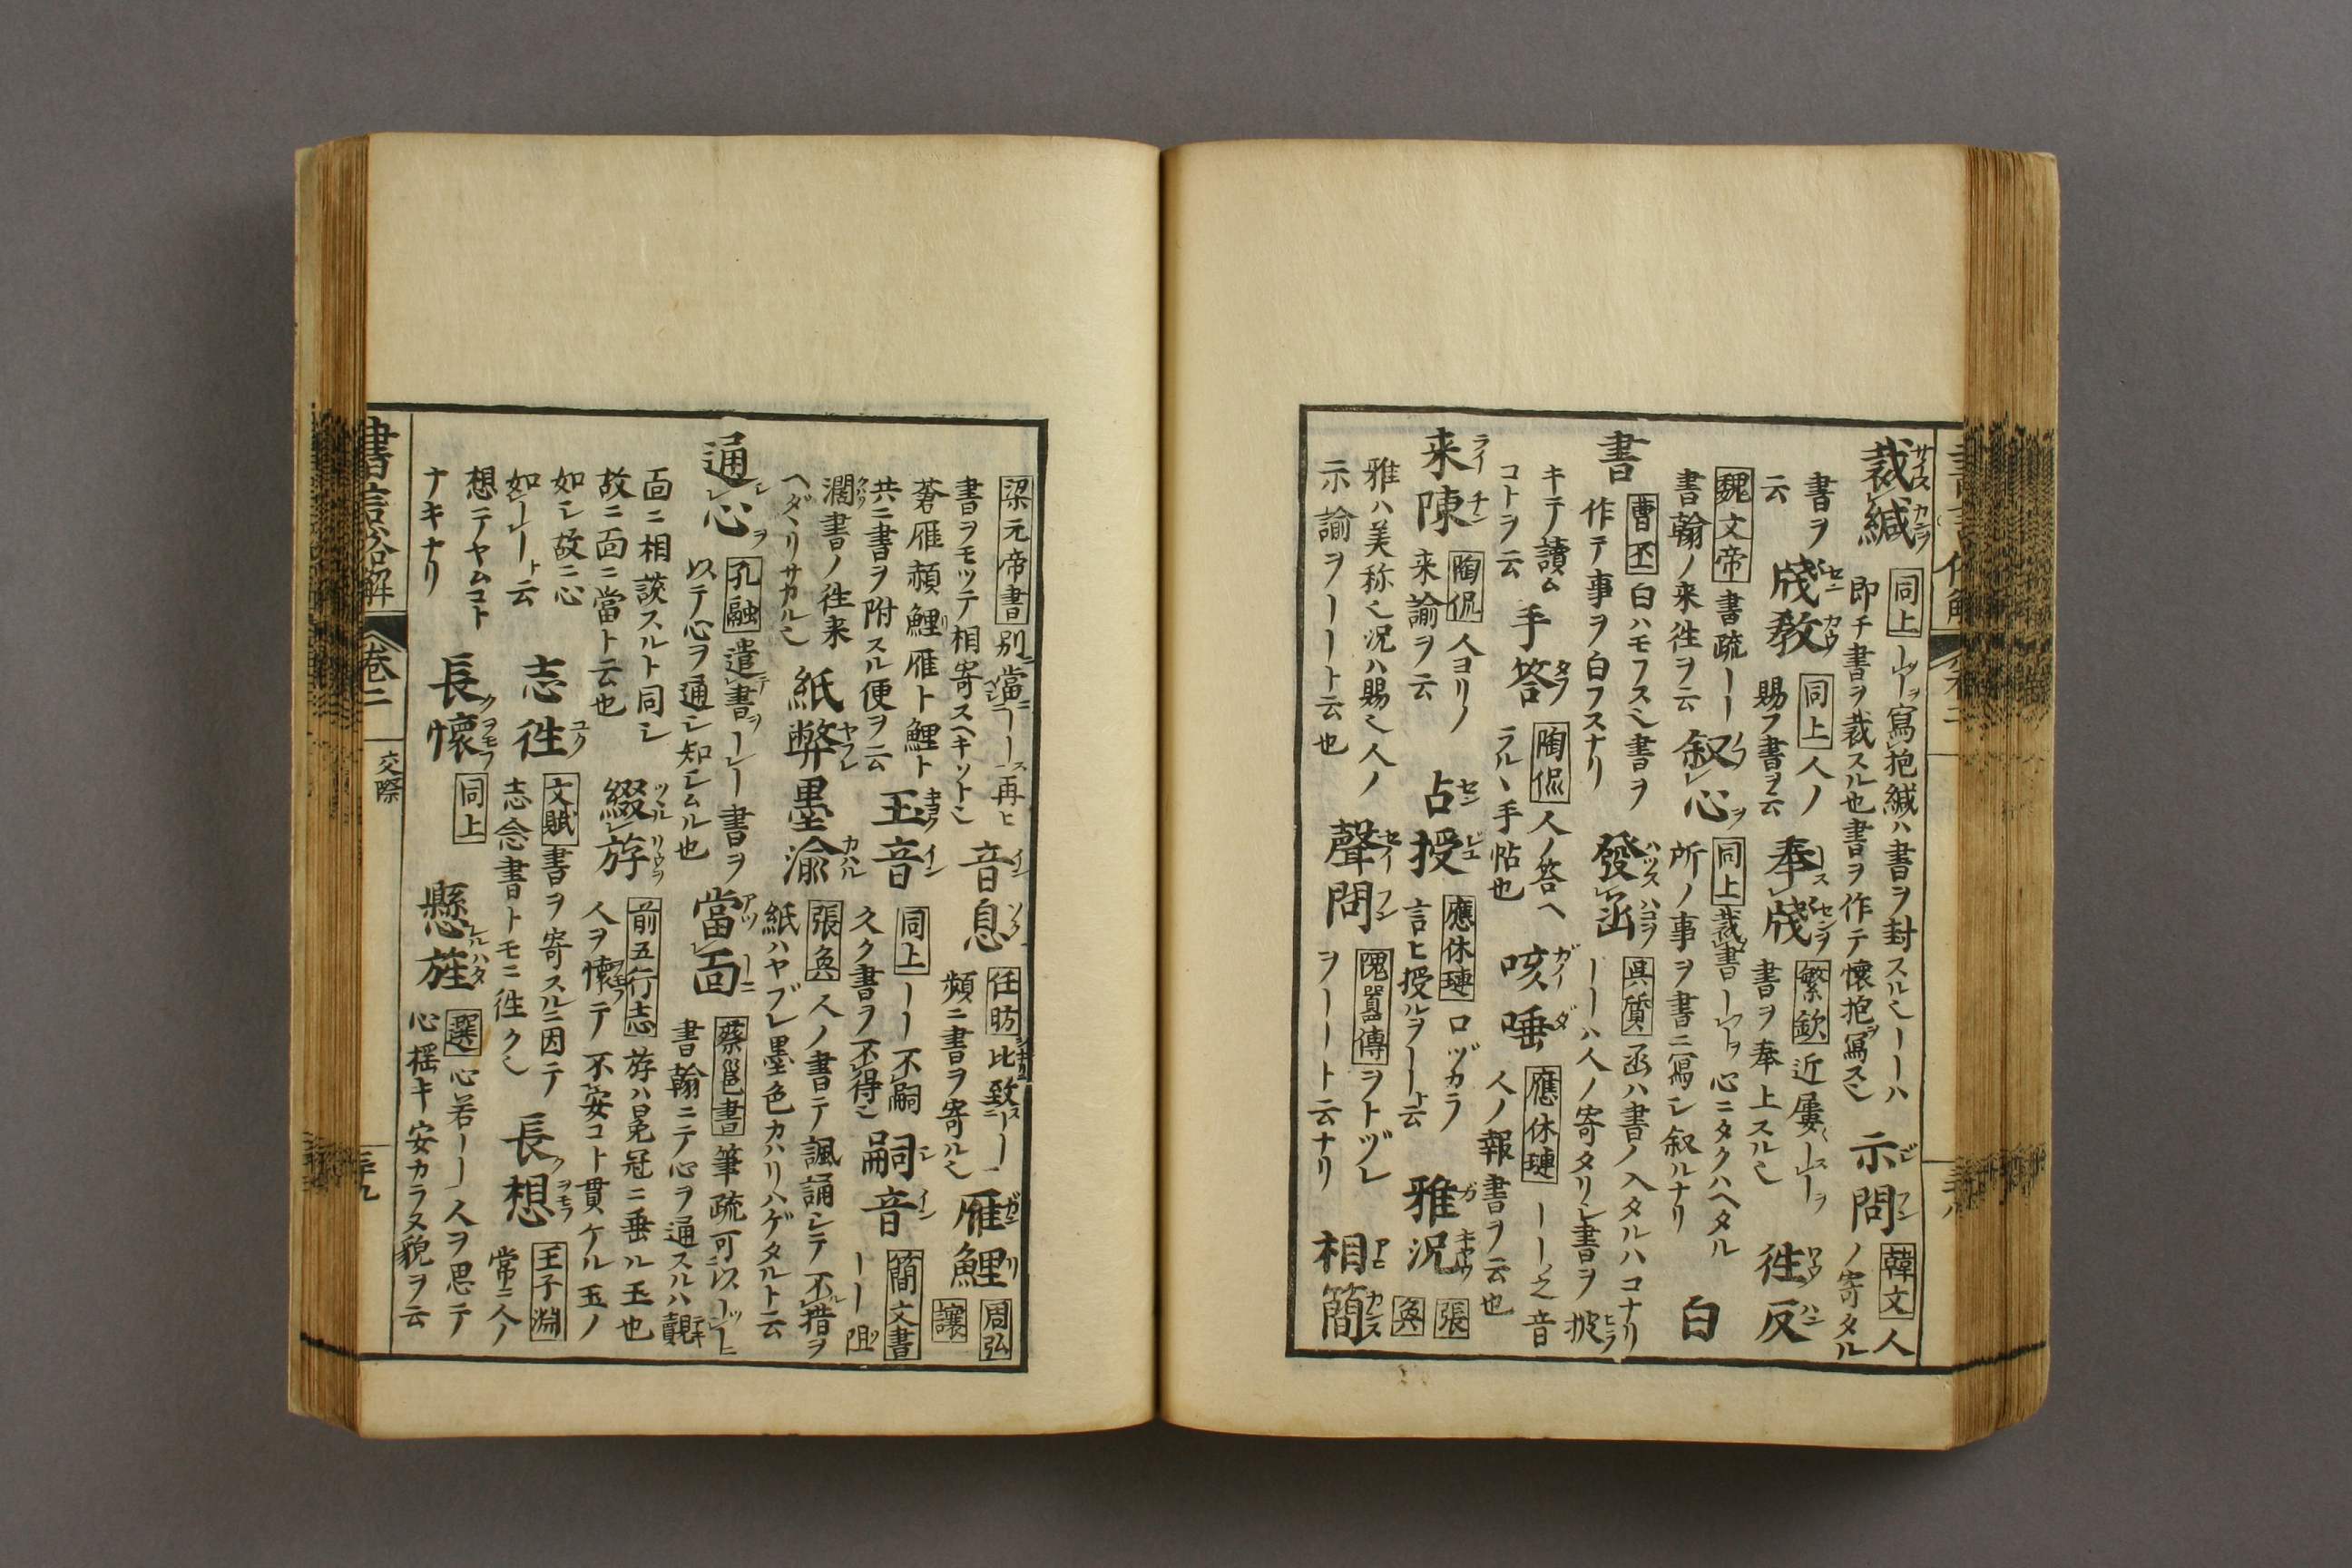 裁緘 同上 ーー寫抱緘ハ書ヲ封スルヽーーハ
即チ書ヲ裁スル也書ヲ作テ懐抱ヲ寫スヽ
示問 韓文 人
ノ寄タル
書ヲ
云
牋教 同上 人ノ
賜フ書ヲ云
奉牋 繁欽 近屢ーー
書ヲ奉上スルヽ
往反
魏文帝 書疏ーー
書翰ノ来往ヲ云
叙心 同上 裁書ーー 心ニタクハヘタル
所ノ事ヲ書ニ寫シ叙ルナリ
白
書 曹丕 白ハモフスヽ書ヲ
作テ事ヲ白フスナリ
發函 呉質 函ハ書ノ入タルハコナリ
ーーハ人ノ寄タリシ書ヲ披
キテ讀ム
コトヲ云
手答 陶侃 人ノ答ヘ
ラルヽ手帖也
咳唾 應休璉 ーー之音
人ノ報書ヲ云也
来陳 陶侃 人ヨリノ
来諭ヲ云
占授 應休璉 口ヅカラ
言ヒ授ルヲーート云
雅況 張
奐
雅ハ美称ヽ況ハ賜ヽ人ノ
示諭ヲーート云也
聲問 隗囂傳 ヲトヅレ
ヲーート云ナリ
相簡
梁元帝書 別當ーー再ヒ
書ヲモツテ相寄スヘキツトヽ
音息 任昉 比致ーー
頻ニ書ヲ寄ルヽ
雁鯉 周弘
讓
蒼雁頳鯉雁ト鯉ト
共ニ書ヲ附スル便ヲ云
玉音 同上 ーー不嗣
久ク書ヲ不得ヽ
嗣音 簡文書
ーー阻
濶書ノ往来
ヘダヽリサカルヽ
紙弊墨渝 張奐 人ノ書テ諷誦シテ不措ヲ
紙ハヤブレ墨色カハリハゲタルト云
通心 孔融 遣書ーー書ヲ
以テ心ヲ通シ知シムル也
當面 蔡邕書 筆疏可以ーー
書翰ニテ心ヲ通スルハ覿
面ニ相談スルト同シ
故ニ面ニ當ト云也
綴斿 前五行志 斿ハ冕冠ニ垂ル玉也
人ヲ懐テ不安コト貫ケル玉ノ
如シ故ニ心
如ーート云
志往 文賦 書ヲ寄スルニ因テ
志念書トモニ往クヽ
長想 王子淵
常ニ人ノ
想テヤムコト
ナキナリ
長懐 同上
懸旌 選 心若ーー人ヲ思テ
心揺キ安カラヌ貌ヲ云
書言俗解 卷二 交際 三十九